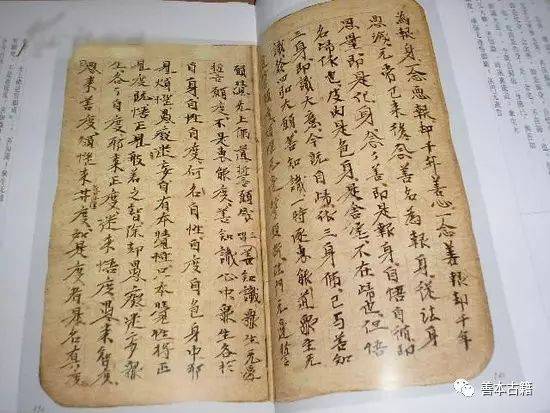 為報身一念惡報却千年善心一念善報却千年
惡滅无常已來後念善名為報身從法身
思量即是化身念〻善即是報身自悟自修即
名歸依也皮肉是色身是舍宅不在歸也但悟
三身即識大意今既自歸依三身佛已与善知
識發四弘大願善知識一時逐惠能道衆生无
邊誓願度煩惱无邊誓願斷法門无邊誓
願學无上佛道誓願成三唱善知識衆生无邊
誓願度不是惠能度善知識心中衆生各於
自身自性自度何名自性自度自色身中邪
見煩惱愚癡迷妄自有本覺性只本覺性將正
見度既悟正見般若之智除却愚癡迷妄衆
生各〻自度邪來正度迷來悟度愚來智度
惡來善度煩惱來菩提度如是度者是名真度
善本古籍